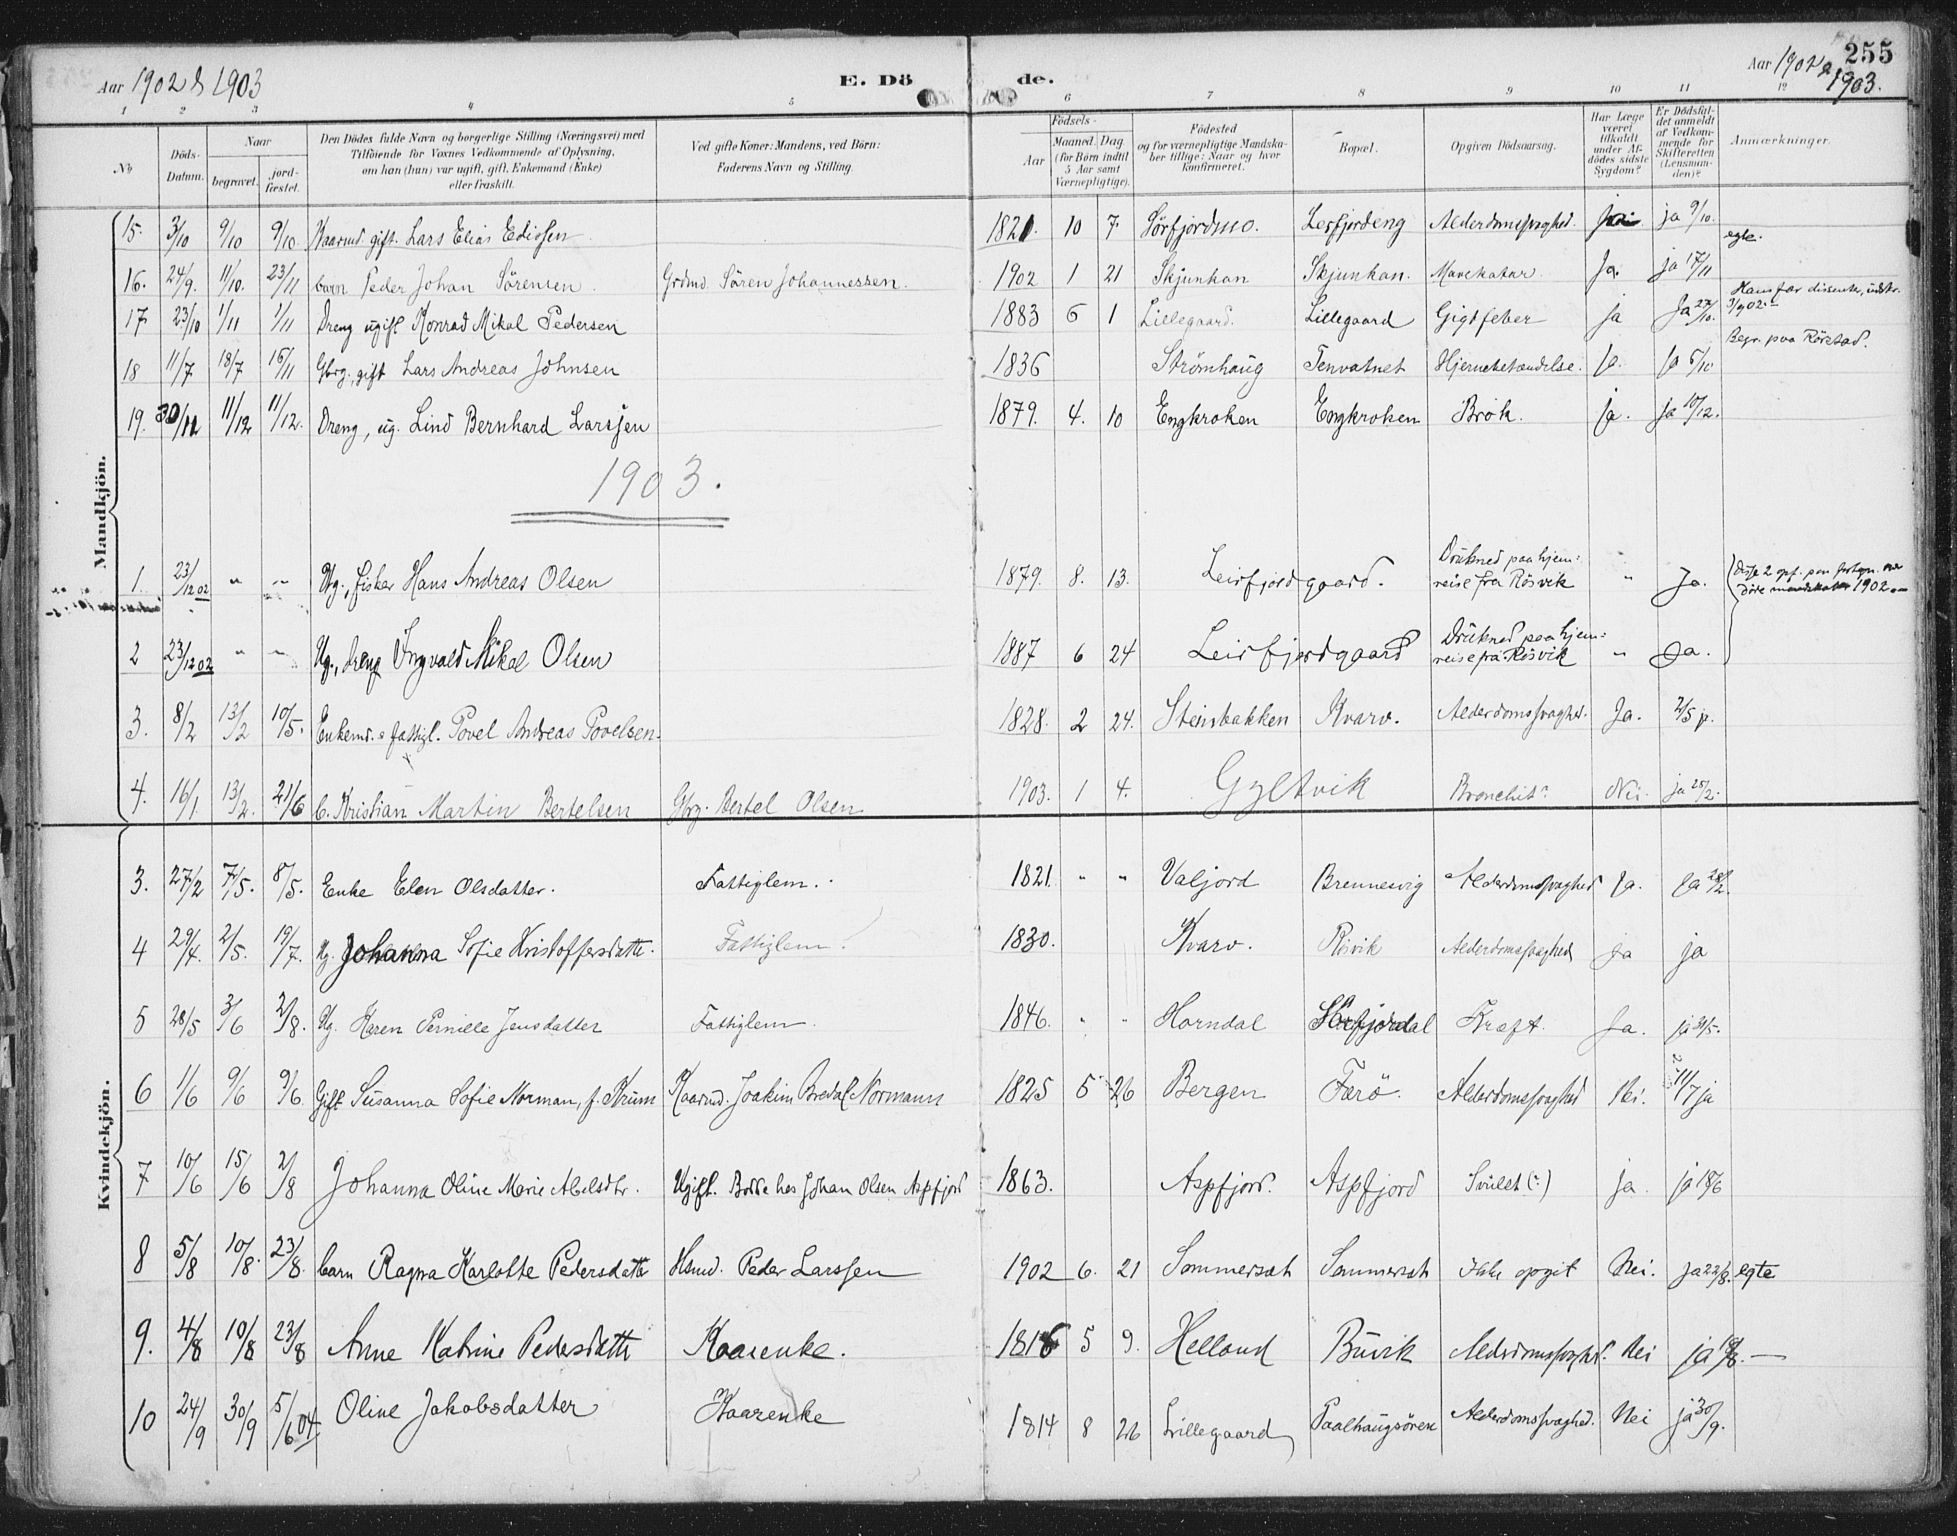 255
Aar 1902 & 1903 E. Dö de. Aar 1902 & 1903.
1 2 3 4 5 6 7 8 9 10 11 12
No Döds-Datum. Naar begravet. jordfæstet. Den Dödes fulde Navn og borgerlige Stilling (Næringsvei) med Tilföiende for Voxnes Vedkommende af Oplysning, om han (hun) var ugift, gift, Enkemand (Enke) eller fraskilt. Ved gifte Koner: Mandens, ved Börn: Faderens Navn og Stilling. Födsels- Aar Maaned. Dag (for Börn indtil 5 Aar samt Værnepligtige). Födested og for værnepligtige Mandskaber tillige: Naar og hvor konfirmeret. Bopæl. Opgiven Dödsaarsag. Har Læge været tilkaldt under Afdödes sidste Sygdom? Er Dödsfaldet anmeldt af Vedkommende for Skifteretten (Lensmanden)? Anmærkninger.
Mandkjön.
15. 3/10 9/10 9/10 Kaarmd. gift. Lars Elias Edissen 1821. 10 7 Sörfjordmo. Leirfjordeng Alderdomssvaghed. Ja ja 9/10.
16. 24/9. 11/10. 23/11 barn Peder Johan Sörensen Grdmd. Sören Johannessen. 1902 1 21 Skjunkan Skjunkan. Mavekatar. Ja. ja 17/11 egte.
17 23/10 1/11 1/11 Dreng ugift Konrad Mikal Pedersen 1883 6 1 Lillegaard. Lillegaard Gigtfeber ja Ja 27/10. Hans far dissenter, udtr. 3/9 02.
18 11/7 18/7 16/11 Gbrg. gift Lars Andreas Johnsen 1836 Strømhaug Tenvatnet Hjernebetændelse. Ja. Ja 6/10 Begr. paa Röresad.
19. 30/11 11/12 11/12. Dreng, ug. Lind Bernhard Larssen 1879. 4. 10 Engkroken Engkroken Brok. ja. ja 10/12.
1903.
1. 23/12 02 " " Ug., fisker Hans Andreas Olsen 1879. 8. 13. Leirfjordgaard. Drukned paa hjemreise fra Rösvik " Ja. Disse 2 opf. paa 1902.
2 23/12 02 " " Ug., dreng Ingvald Mikal Olsen 1887 6 24 Leirfjordgaard Drukned paa hjemreise fra Rösvik " Ja.
3. 8/2 13/2 10/5. Enkemd. & fattigl. Povel Andreas Povelsen. 1828. 2 24. Steinbakken Kvarv. Alderdomssvaghed. Ja. 2/5 ja.
4. 16/1 13/2. 21/6 b. Kristian Martin Bertelsen Gbrg. Bertel Olsen 1903. 1 4. Gyltvik Bronchit? Nei. ja 25/2.
Kvindekjön.
3. 27/2 7/5. 8/5. Enke Elen Olsdatter. Fattiglem. 1821. " " Valjord Brennesvig Alderdomssvaghed Ja. Ja 28/2.
4 29/4. 2/5. 19/7. Ug. Johanna Sofie Kristoffersdatter. Fattiglem. 1830. Kvarv. Rösvik Alderdomssvaghed ja ja
5 28/5 3/6 2/8. Ug. Karen Pernille Jensdatter Fattiglem. 1846. " " Horndal Sörfjordal Kræft. Ja. ja 31/5.
6 1/6 9/6 9/6. Gift Susanna Sofie Norman, f. Krum Kaarmd. Joakim Bredal Normann 1825 5 26 Bergen Færö. Alderdomssvaghed Nei. 11/7 ja
7 10/6 15/6 2/8 Johanna Oline Marie Abelsdtr. Ugift. Bodde hos Johan Olsen Aspfjord 1863. Aspfjord. Aspfjord Svulst (?) ja. ja 18/6
8 5/8 10/8. 23/8. barn Ragna Karlotte Pedersdatter Hsmd. Peder Larssen 1902 6. 21 Sommerset Sommerset Ikke opgit Nei. ja 22/8. egte
9. 4/8 10/8 23/8 Anne Katrine Pedersdatter Kaarenke. 1816 5 9. Helland Buvik Alderdomssvaghed. Nei ja 19/8.
10 24/9 30/9 5/6 04. Oline Jakobsdatter Kaarenke 1814 8 26 Lillegaard Paalhaugsören Alderdomssvaghed. Nei ja 30/9.